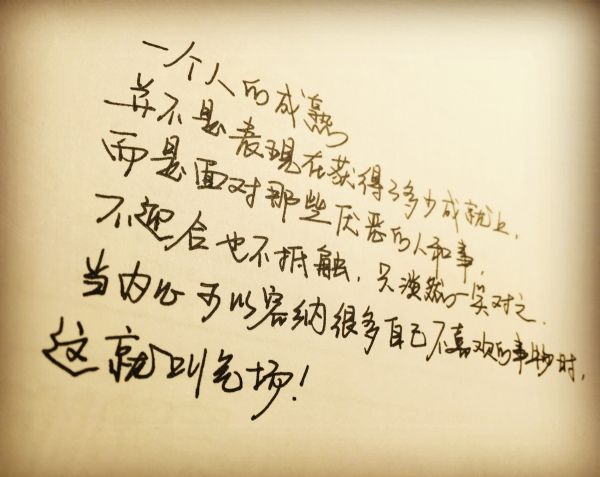 一个人的成熟
并不是表现在获得了多少成就上,
而是面对那些厌恶的人和事,
不迎合也不抵触,只淡然一笑对之.
当内心可以容纳很多自己不喜欢的事物时,
这就叫气场!